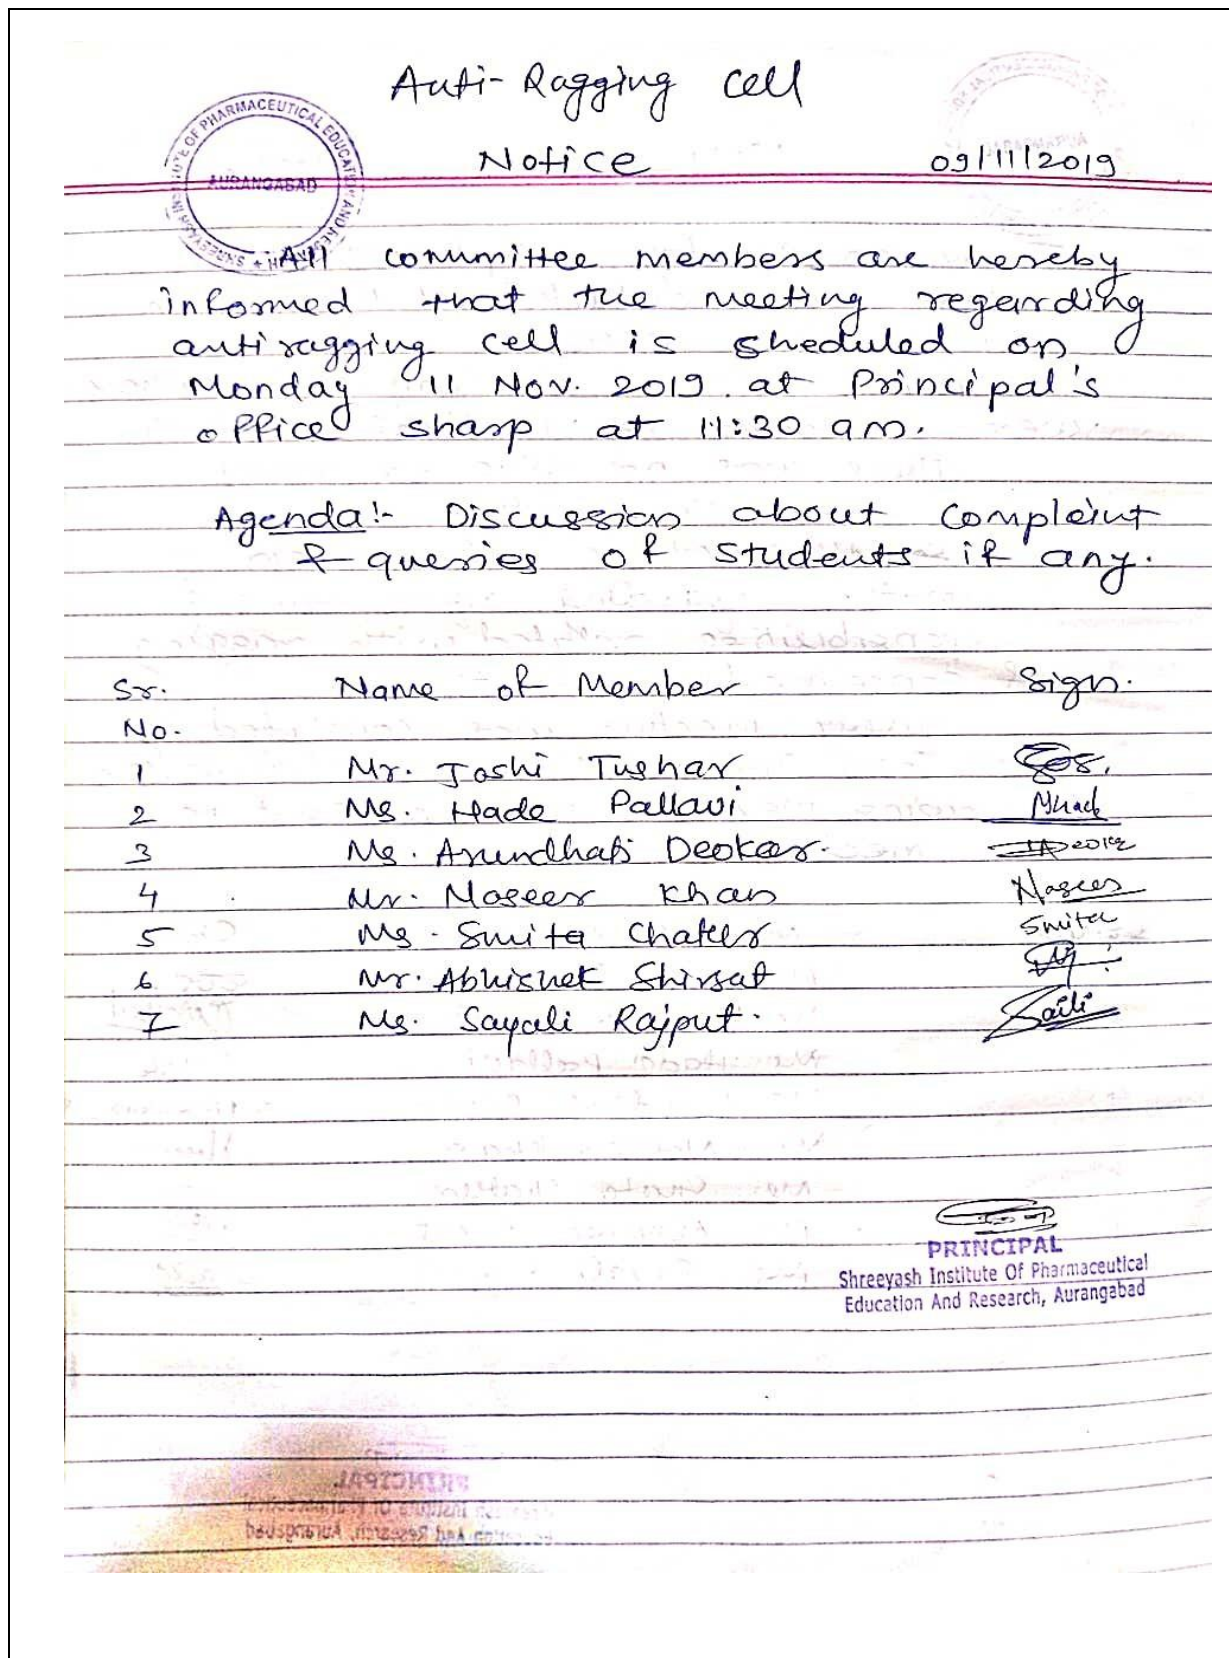 Anti-Ragging Cell
Notice 09/11/2019
INSTITUTE OF PHARMACEUTICAL EDUCATION AND
AURANGABAD
All committee members are hereby
informed that the meeting regarding
antiragging cell is sheduled on
Monday 11 Nov. 2019 at Principal's
office sharp at 11:30 am.
Agenda:- Discussion about Complaint
& queries of students if any.
Sr. Name of Member Sign.
No.
1 Mr. Joshi Tushar
2 Ms. Hade Pallavi
3 Ms. Arundhati Deokar.
4 Mr. Naseer Khan Naseer
5 Ms. Smita Chater Smita
6 Mr. Abhishek Shirsat
7 Ms. Sayali Rajput. Saili
PRINCIPAL
Shreeyash Institute Of Pharmaceutical
Education And Research, Aurangabad